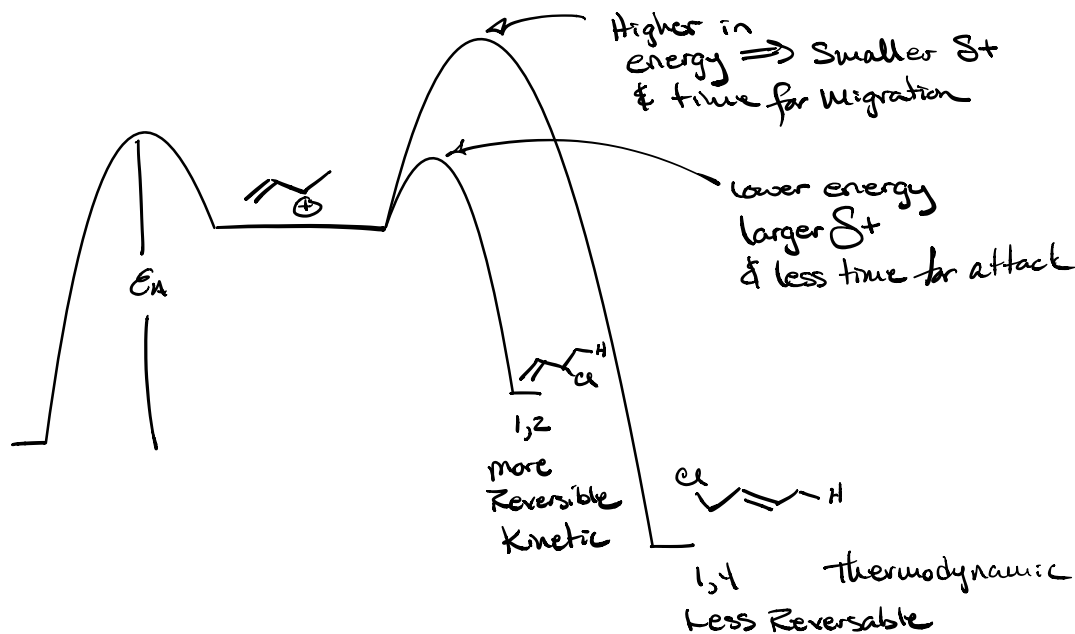 Higher in
energy ⇒ Smaller δ+
& time for Migration
lower energy
larger δ+
& less time for attack
⊕
EA
H
Cl
1,2
more
Reversible
Kinetic
Cl
H
1,4 Thermodynamic
Less Reversable